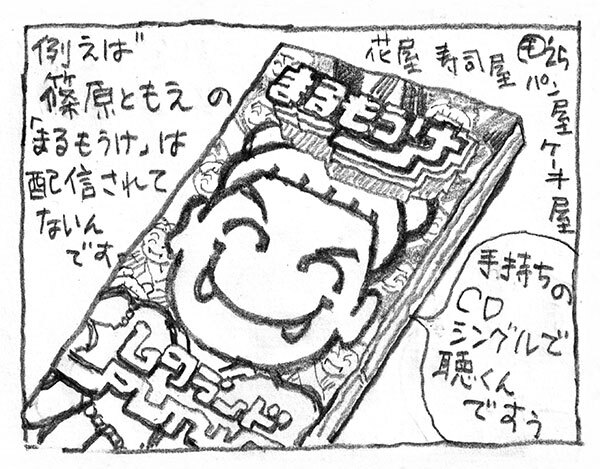 例えば
篠原ともえの
「まるもうけ」は
配信されて
ないん
です
まるもうけ
花屋 寿司屋
パン屋ケーキ屋
手持ちの
CD
シングルで
聴くんですぅ